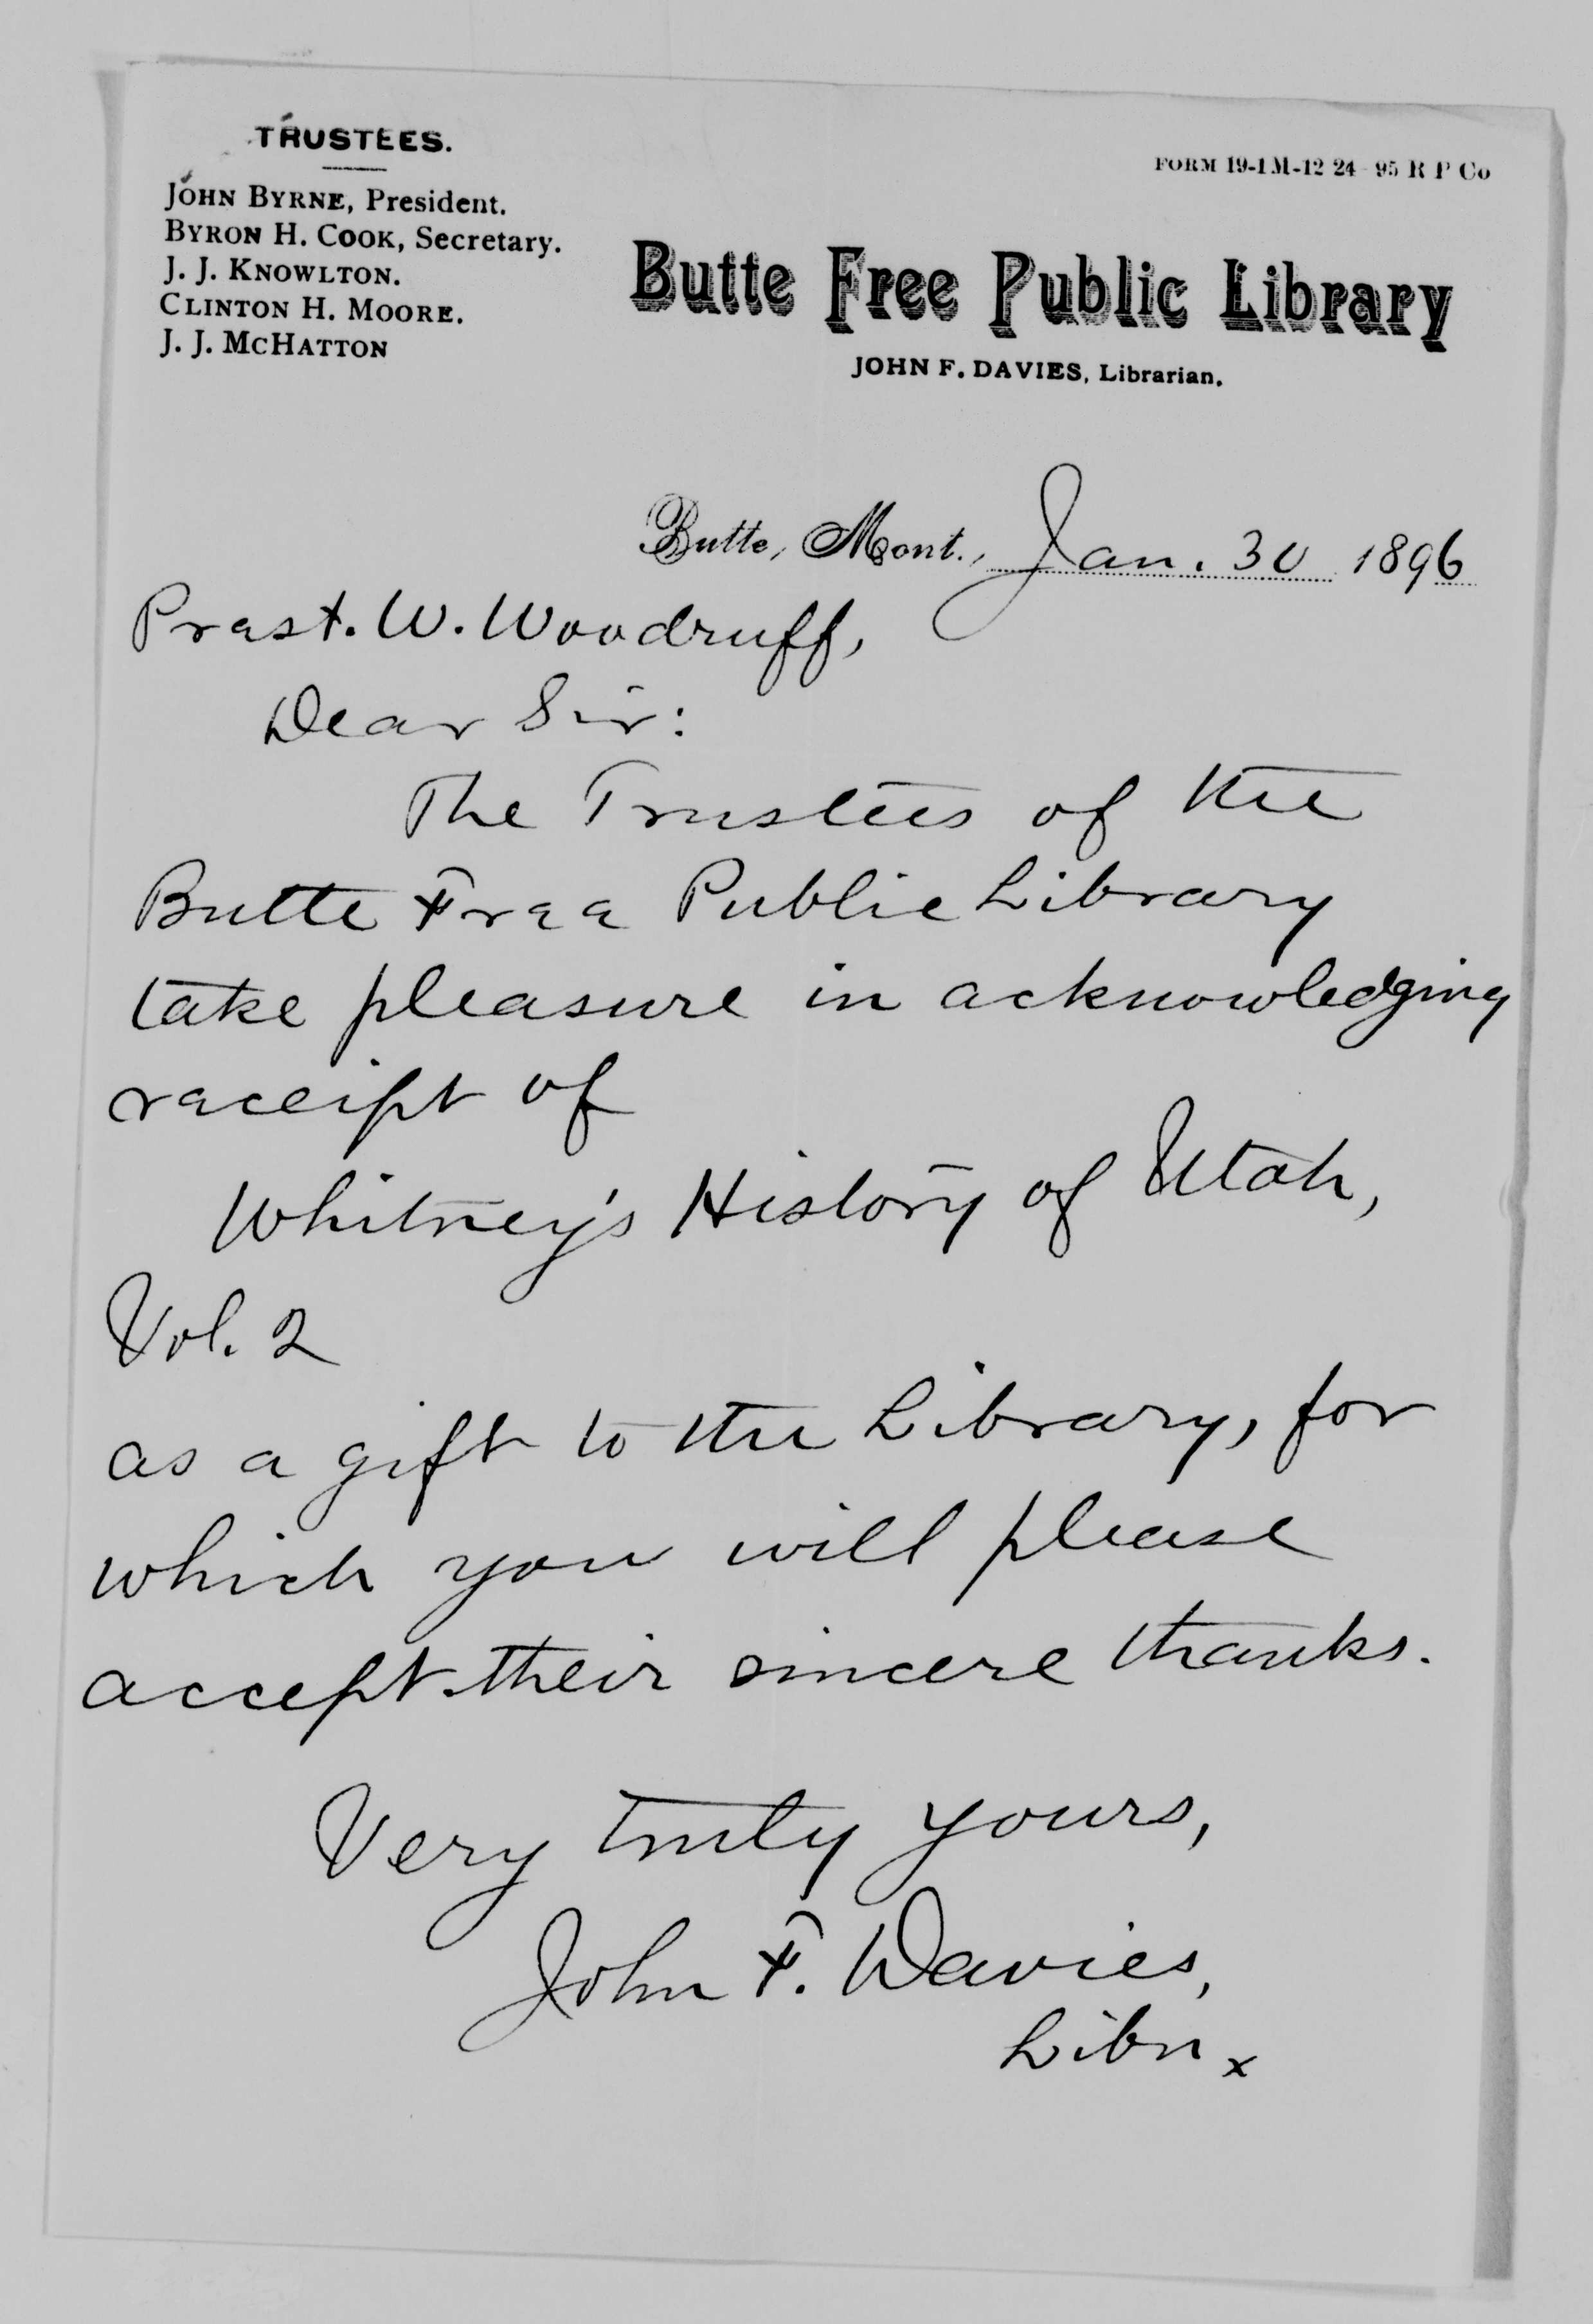 TRUSTEES.
JOHN BYRNE, President.
BYRON H. COOK, Secretary.
J. J. KNOWLTON.
CLINTON H. MOORE.
J. J. MCHATTON
FORM 19-1M-12 24-95 R P Co
Butte Free Public Library
JOHN F. DAVIES, Librarian.
Butte, Mont., Jan. 30 1896
Prest. W. Woodruff,
Dear Sir:
The Trustees of the
Butte Free Public Library
take pleasure in acknowledging
receipt of
Whitney's History of Utah,
Vol. 2
as a gift to the Library, for
which you will please
accept their sincere thanks.
Very truly yours,
John F. Davies,
Libn x